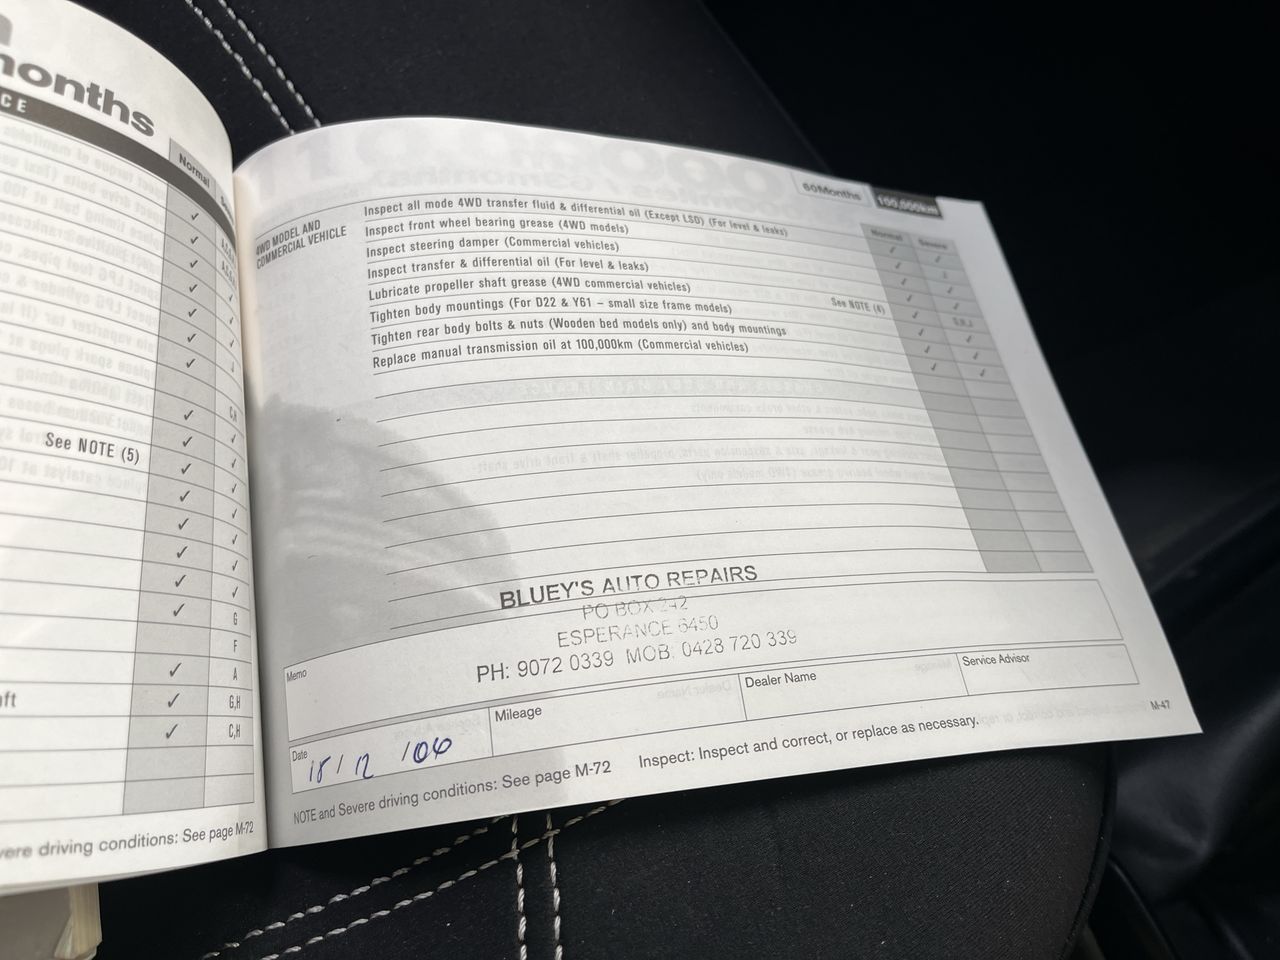 months
CE
Normal
See NOTE (5)
ft
G
F
A
G,H
C,H
vere driving conditions: See page M-72
60Months
100,000km
Normal
Severe
4WD MODEL AND
COMMERCIAL VEHICLE
Inspect all mode 4WD transfer fluid & differential oil (Except LSD) (For level & leaks)
Inspect front wheel bearing grease (4WD models)
Inspect steering damper (Commercial vehicles)
Inspect transfer & differential oil (For level & leaks)
Lubricate propeller shaft grease (4WD commercial vehicles)
Tighten body mountings (For D22 & Y61 – small size frame models)
See NOTE (6)
Tighten rear body bolts & nuts (Wooden bed models only) and body mountings
Replace manual transmission oil at 100,000km (Commercial vehicles)
BLUEY'S AUTO REPAIRS
PO BOX 242
ESPERANCE 6450
PH: 9072 0339 MOB: 0428 720 339
Memo
Date
Mileage
Dealer Name
Service Advisor
NOTE and Severe driving conditions: See page M-72
Inspect: Inspect and correct, or replace as necessary.
M-47